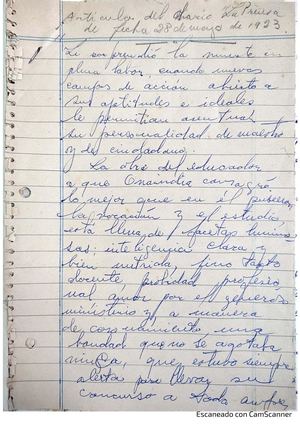 Artículo del diario La Prensa
de fecha 28 de mayo de 1933
Le sorprendió la muerte en
plena labor, cuando nuevos
campos de acción abierto a
sus aptitudes e ideales
le permitían acentuar
su personalidad de maestro
y de ciudadano.
La obra del educador
a que Onaindia consagró
lo mejor que en él pusieron
la vocación y el estudio,
está llena de facetas lumino
sas; inteligencia clara y
bien nutrida, fino tacto
docente probidad profesio
nal, amor por el generoso
ministerio y a manera
de coronamiento, una
bondad que no se agotaba
nunca, que estuvo siempre
alerta para llevar su
concurso a toda
Escaneado con CamScanner